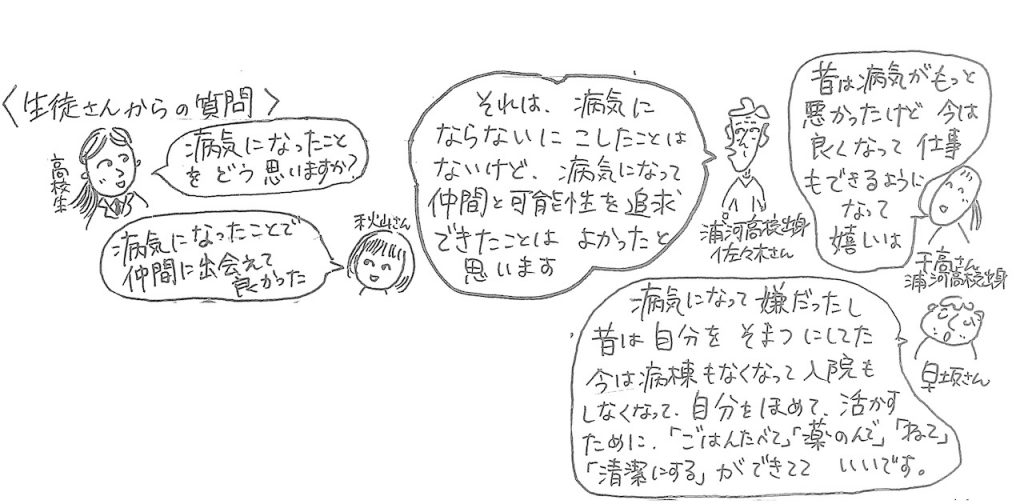 〈生徒さんからの質問〉
高校生
病気になったこと
をどう思いますか?
病気になったことで
仲間に出会えて
良かった
秋山さん
それは、病気に
ならないにこしたことは
ないけど、病気になって
仲間と可能性を追求
できたことは よかったと
思います
浦河高校出身
佐々木さん
昔は病気がもっと
悪かったけど 今は
良くなって 仕事
もできるように
なって
嬉しいは
千高さん
浦河高校出身
病気になって 嫌だったし
昔は自分を そまつにしてた
今は病棟もなくなって入院も
しなくなって、自分をほめて、活かす
ために、「ごはんたべて」「薬のんで」「ねて」
「清潔にする」ができてて いいです。
早坂さん